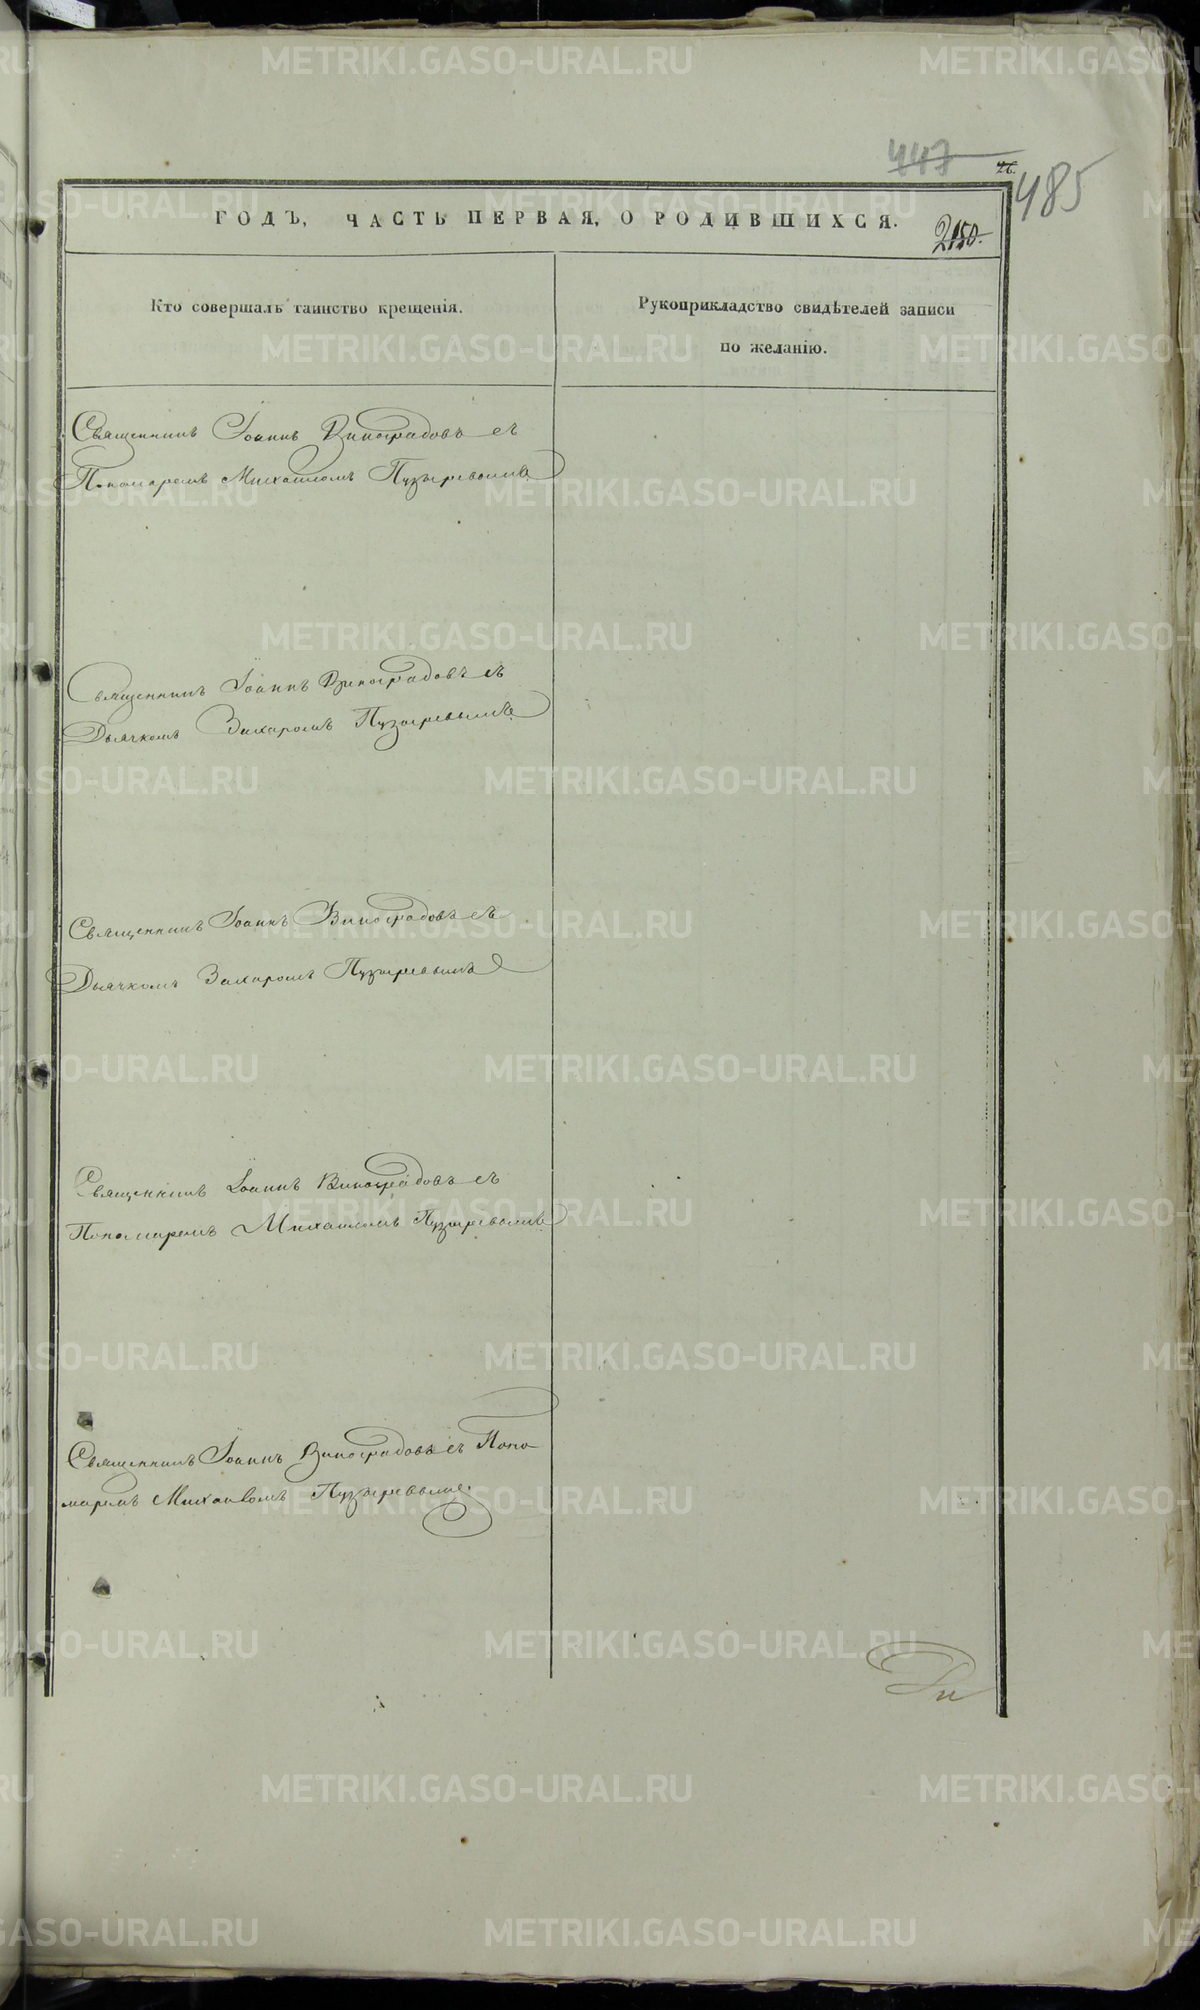 447
26.
485
ГОДЪ, ЧАСТЬ ПЕРВАЯ, О РОДИВШИХСЯ.
2150.
Кто совершалъ таинство крещенія.
Рукоприкладство свидѣтелей записи
по желанію.
Священникъ Іоаннъ Виноградовъ съ
Пономаремъ Михаиломъ Пузыревымъ
Священникъ Іоаннъ Виноградовъ съ
Дьячкомъ Захаромъ Пузыревымъ
Священникъ Іоаннъ Виноградовъ съ
Дьячкомъ Захаромъ Пузыревымъ
Священникъ Іоаннъ Виноградовъ съ
Пономаремъ Михаиломъ Пузыревымъ
Священникъ Іоаннъ Виноградовъ съ Поно
маремъ Михаиломъ Пузыревымъ.
METRIKI.GASO-URAL.RU